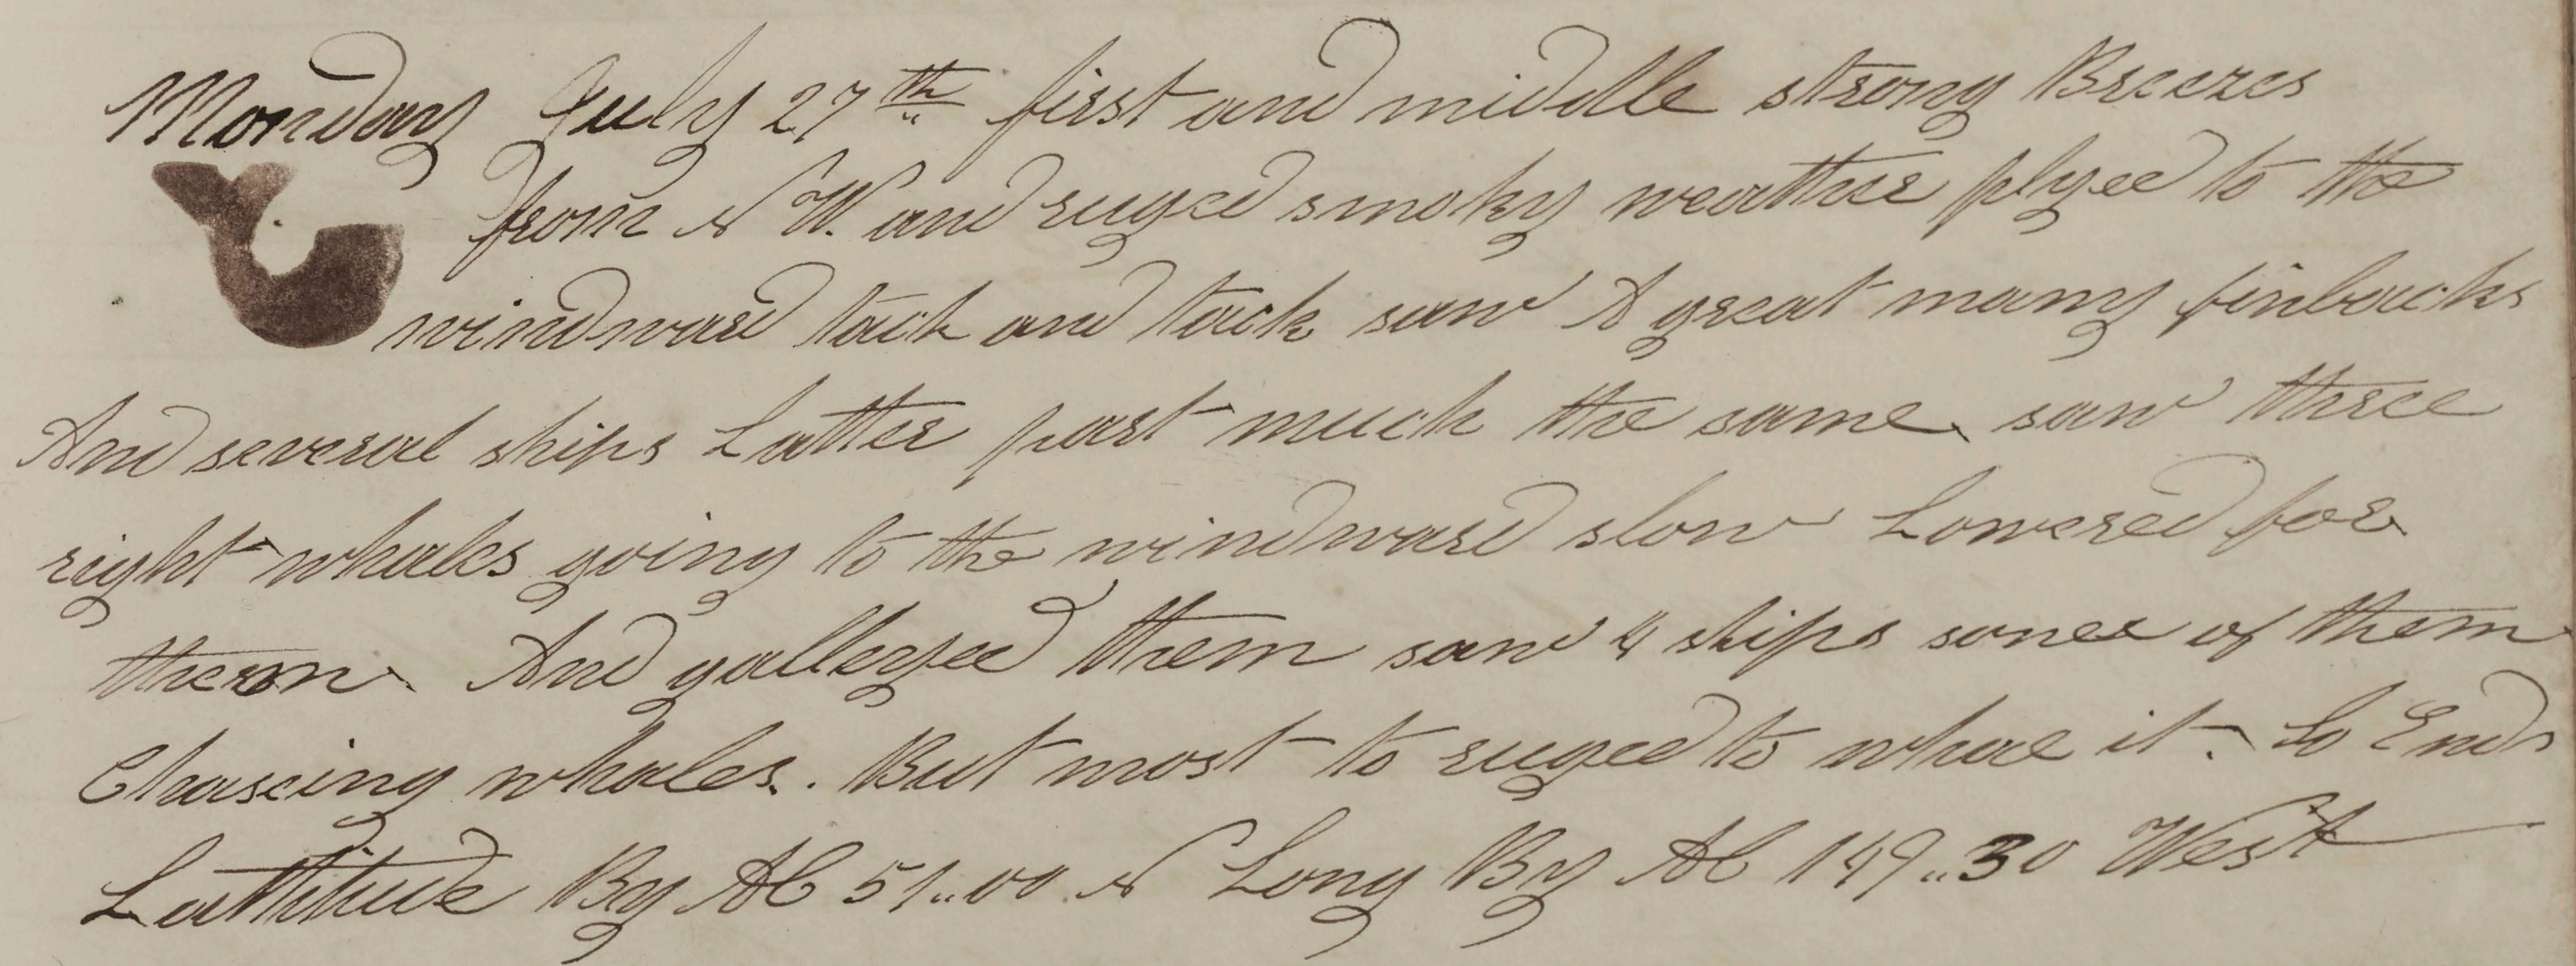 Monday July 27th first and middle strong Breezes
from N W. and ruged smoky weather plyed to the
windward tack and tack saw A great many finbacks
And several ships Latter part much the same saw three
right whales going to the windward slow Lowered for
them. And gallyed them saw 4 ships some of them
Chaseing whales. But most to ruged to whale it. So Ends
Lattitude By Ab 51..00 N Long By Ab 149..30 West